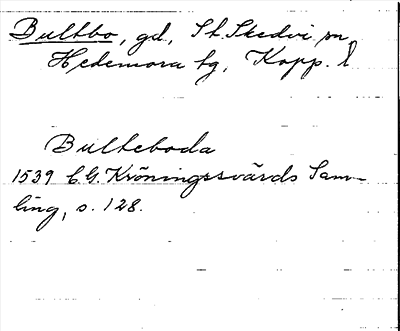 Bultbo, gd, St. Skedvi sn,
Hedemora tg, Kopp. l.
Bulteboda
1539 C.G. Kröningssvärds Sam-
ling, s. 128.